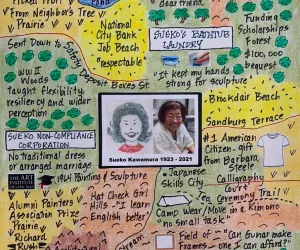 Picked Fruit
From Neighbor's Tree
Prairie
National
City Bank
Job Beach
"respectable"
dear friend
SUEKO'S BATHTUB
LAUNDRY
Funding
Scholarships
Forest
$100,000
bequest
Sent Down to Safety Deposit Boxes St.
"It kept my hands
strong for sculpture"
WW II
Woods
taught flexibility,
resiliency and wider
perception
Brookdair Beach
Sandburg Terrace
SUEKO NON-COMPLIANCE
CORPORATION
No traditional dress
arranged marriage
Sueko Kawamura 1923 - 2021
#1 American
Citizen - gift
from Barbara,
Steele
THE ART
1964 Painting & Sculpture
Japanese
Skills City
Calligraphy
Court
Tea Ceremony Trail
Alumni Painters
Association Prize
Prairie
Richard
Hat Check Girl
Hills - learn
English better
Camp Wear / Move in a Kimono
no small task
Stream
Field of - "Can Gunar make
Frames - one I can afford